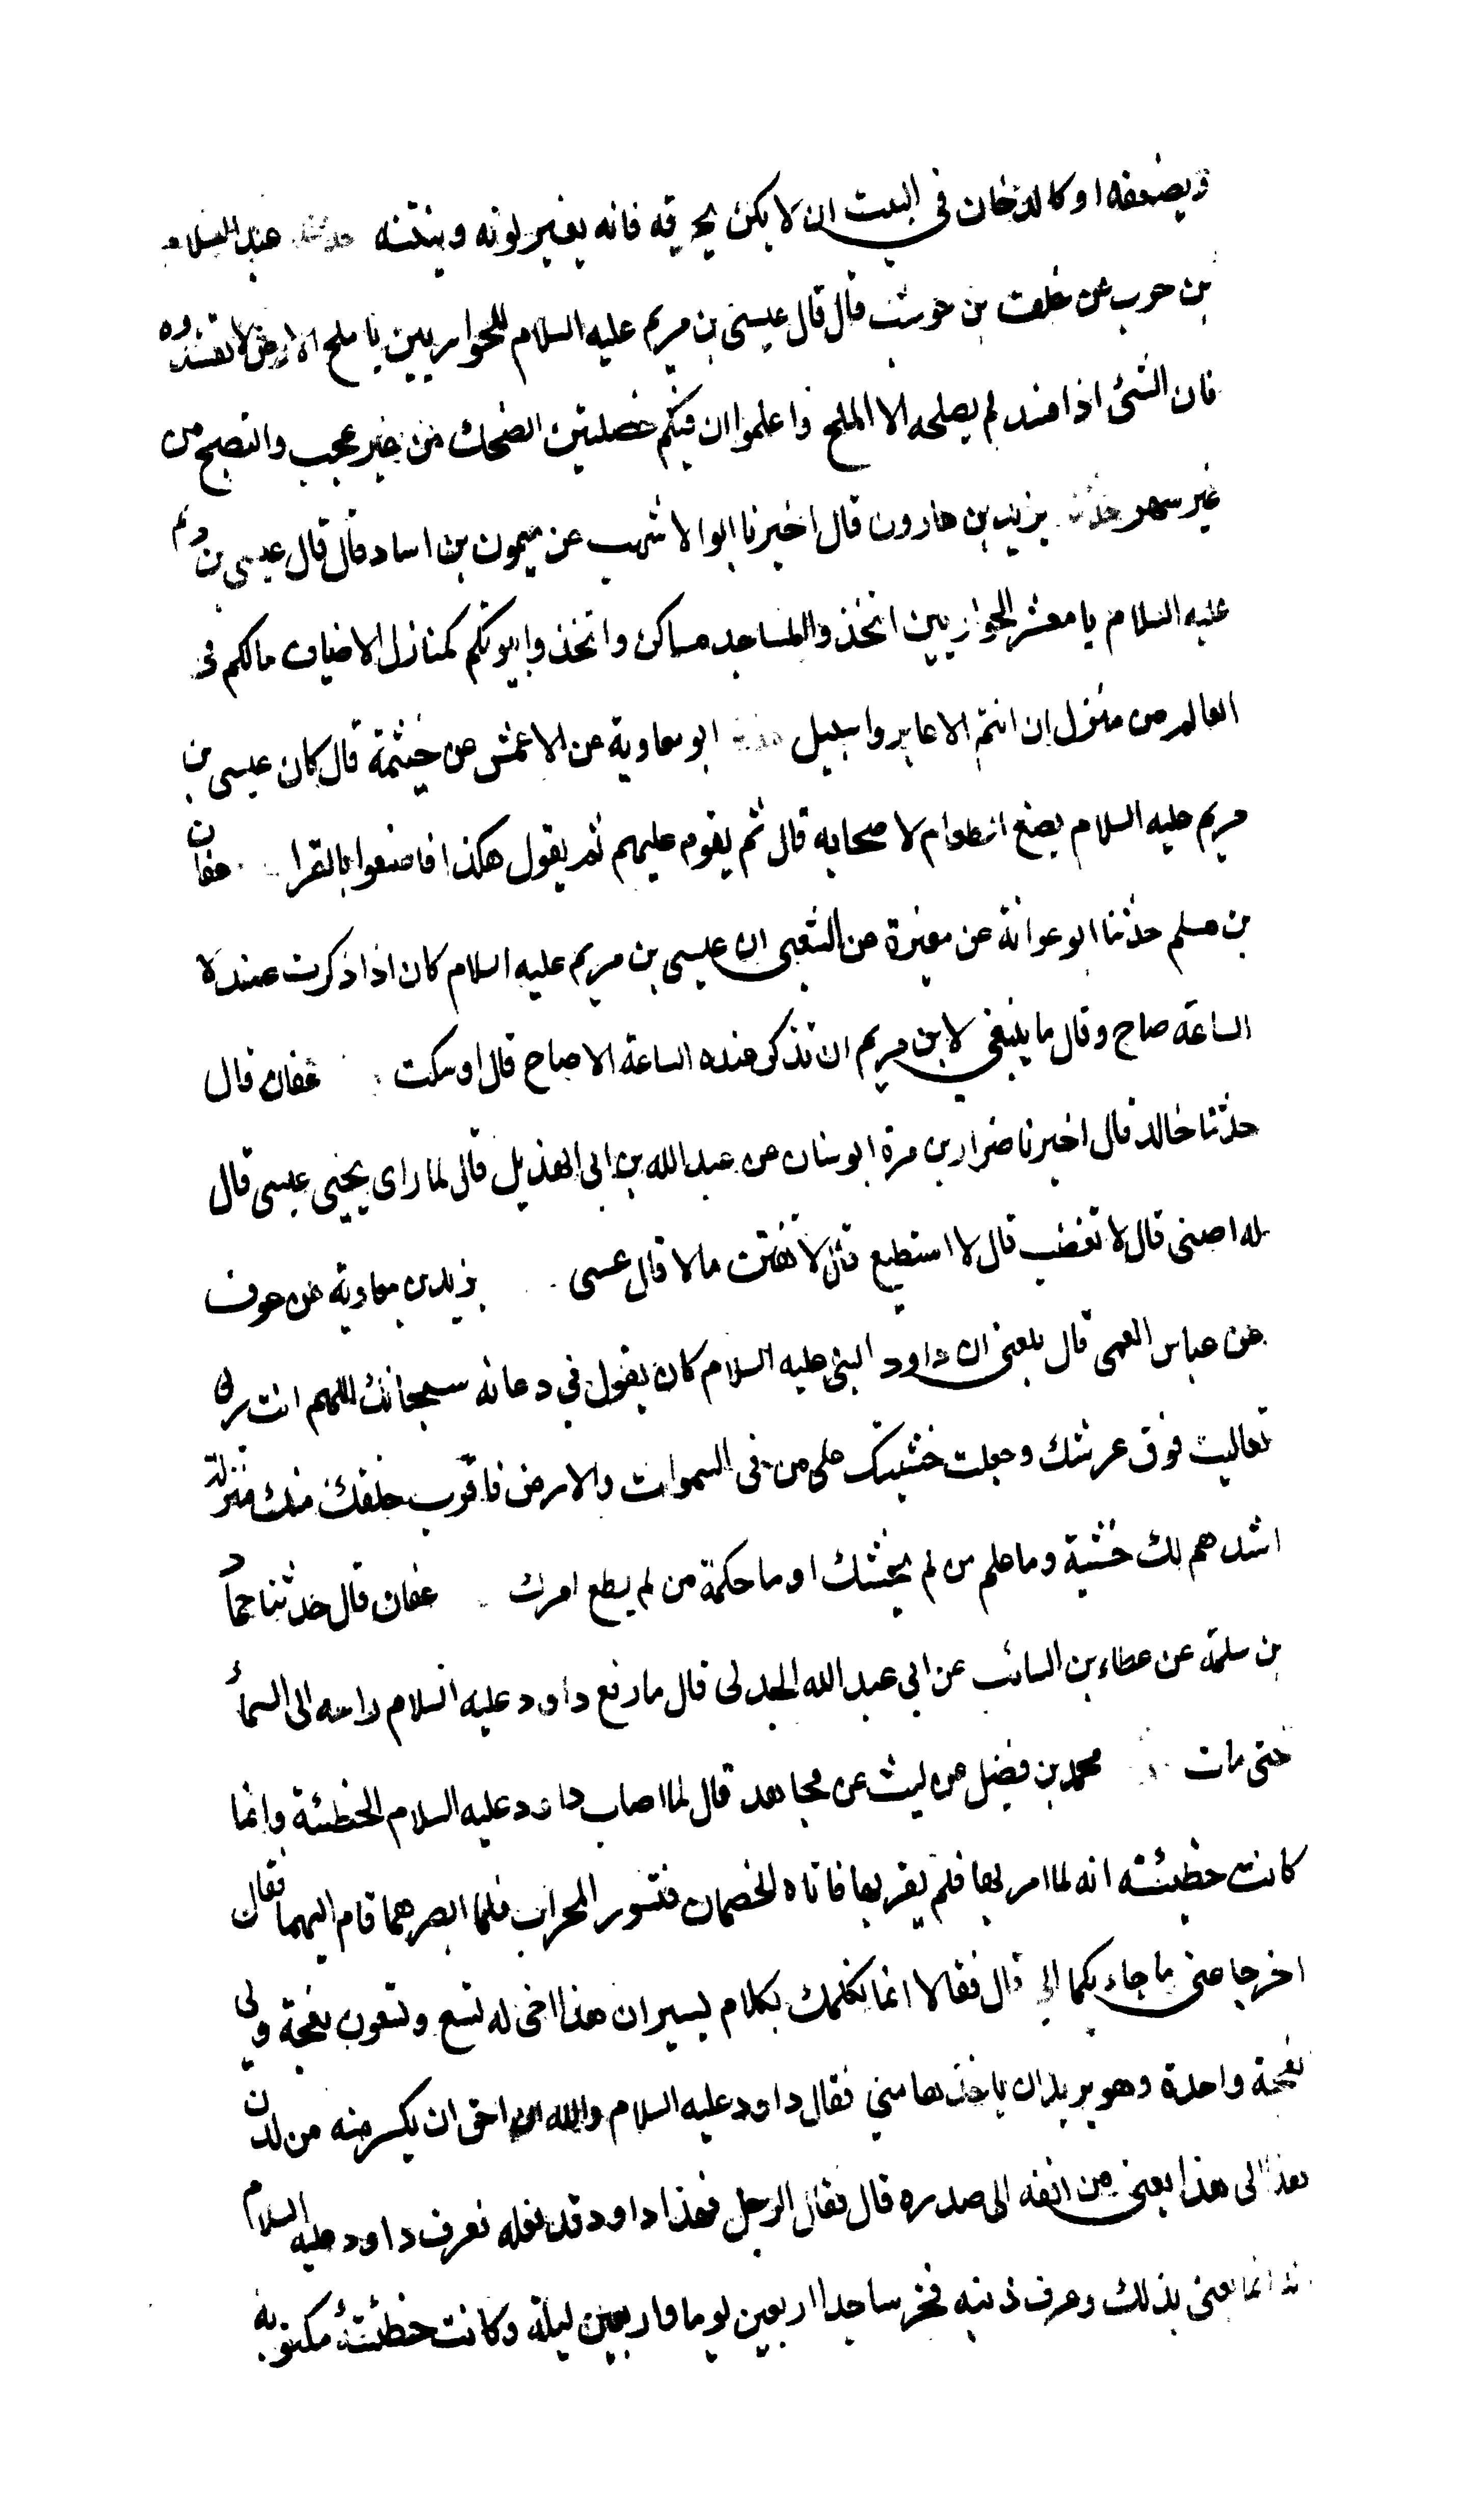 ويضعفه او كالدخان في البيت ان لا يكن يحرقه فانه يغير لونه وينتنه حدثنا عبد السلام
بن حرب عن خلف بن حوشب قال قال عيسى بن مريم عليه السلام للحواريين يا ملح الارض لا تفسدوه
فان الشئ اذا فسد لم يصلحه الا الملح واعلموا ان فيكم خصلتين الضحك من غير عجب والتصبح من
غير سهر حدثنا يزيد بن هارون قال اخبرنا ابو الاشهب عن ميمون بن اساد قال قال عيسى بن مريم
عليه السلام يا معشر الحواريين اتخذوا المساجد مساكن واتخذوا بيوتكم كمنازل الاضياف مالكم في
العالم من منزل ان انتم الا عابروا سبيل حدثنا ابو معاوية عن الاعمش عن خيثمة قال كان عيسى بن
مريم عليه السلام يصنع الطعام لاصحابه قال ثم يقوم عليهم ثم يقول هكذا فاصنعوا بالقرا عفان
بن مسلم حدثنا ابو عوانة عن مغيرة عن الشعبي ان عيسى بن مريم عليه السلام كان اذا ذكرت عنده
الساعة صاح وقال ما ينبغي لابن مريم ان تذكر عنده الساعة الا صاح قال او سكت عفان قال
حدثنا خالد قال اخبرنا ضرار بن مرة ابو سنان عن عبد الله بن ابي الهذيل قال لما راى يحيى عيسى قال
له اوصنى قال لا تغضب قال لا استطيع قال لا تقتن مالا قال عسى يزيد بن معاوية عن عوف
عن عباس العمى قال بلغنى ان داود النبي عليه السلام كان يقول في دعائه سبحانك اللهم انت ربي
تعاليت فوق عرشك وجعلت خشيتك على من في السموات والارض فاقرب خلقك منك منزلة
اشدهم لك خشية وما علم من لم يخشك او ما حكمة من لم يطع امرك عفان قال حدثنا حماد
بن سلمة عن عطاء بن السائب عن ابي عبد الله الجدلى قال ما رفع داود عليه السلام راسه الى السماء
حتى مات محمد بن فضيل عن ليث عن مجاهد قال لما اصاب داود عليه السلام الخطئة وانما
كانت خطيئته انه لما امر بها فلم يقربها فاتاه الخصمان فتسور المحراب فلما ابصرهما قام اليهما فقال
اخرجا عنى ما جاء بكما الي قال فقالا انما نكلمك بكلام يسير ان هذا اخى له تسع وتسعون نعجة ولي
نعجة واحدة وهو يريد ان ياخذها مني فقال داود عليه السلام والله احق ان يكسر منه من لدن
هذا الى هذا يعنى من انفه الى صدره قال فقال الرجل فهذا داود قد فعله فعرف داود عليه السلام
انما يعنى بذلك وعرف ذنبه فخر ساجدا اربعين يوما واربعين ليلة وكانت خطئته مكتوبه